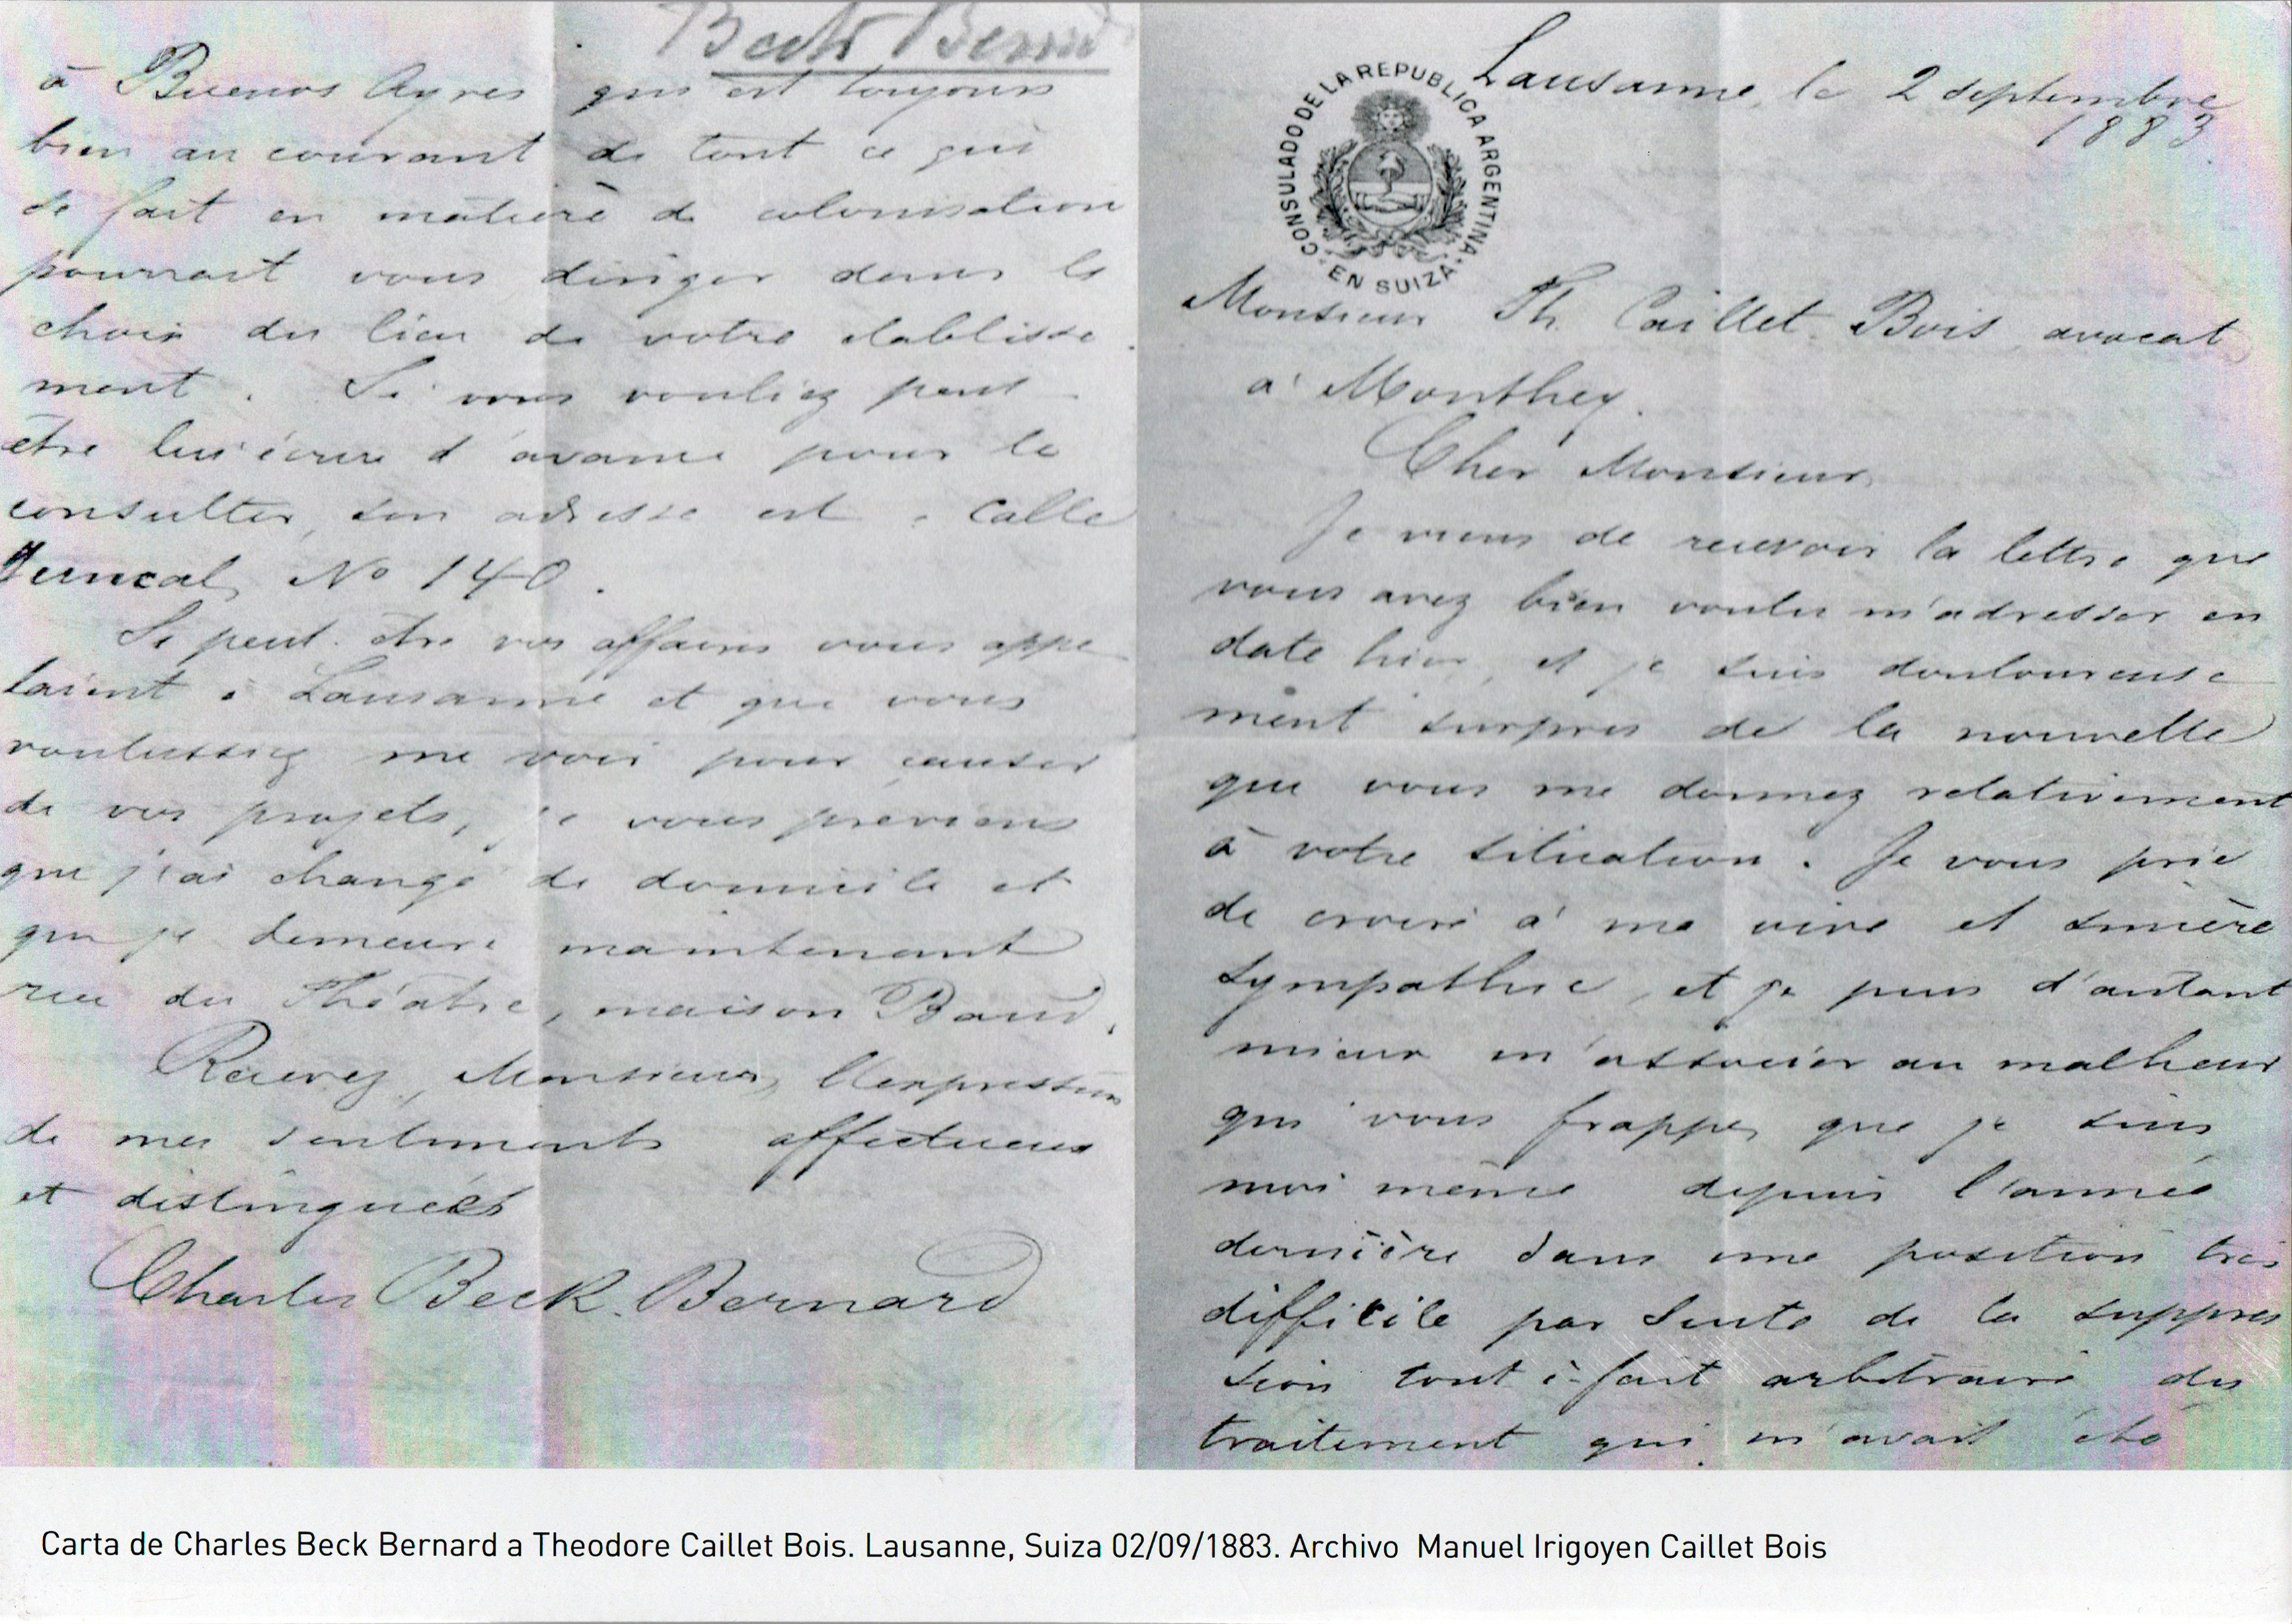 Beck Bernard
à Buenos Ayres qui est toujours
bien au courant de tout ce qui
se fait en matière de colonisation
pourrait vous diriger dans le
choix du lieu de votre établisse
ment. Si vous vouliez peut
être lui écrire d'avance pour le
consulter, son adresse est : Calle
Juncal No 140.
Si peut-être vos affaires vous appe
laient à Lausanne et que vous
voulussiez me voir pour causer
de vos projets, je vous préviens
que j'ai changé de domicile et
que je demeure maintenant
rue du Théâtre, maison Baud.
Recevez, Monsieur, l'expression
de mes sentiments affectueux
et distingués
Charles Beck-Bernard
Lausanne, le 2 septembre
1883.
CONSULADO DE LA REPUBLICA ARGENTINA
EN SUIZA
Monsieur Th. Caillet-Bois avocat
à Monthey.
Cher Monsieur
Je viens de recevoir la lettre que
vous avez bien voulu m'adresser en
date hier, et je suis douloureuse
ment surpris de la nouvelle
que vous me donnez relativement
à votre situation. Je vous prie
de croire à ma vive et sincère
sympathie, et je puis d'autant
mieux m'associer au malheur
qui vous frappe, que je suis
moi même depuis l'année
dernière dans une position très
difficile par suite de la suppres
sion tout à-fait arbitraire du
traitement qui m'avait été
Carta de Charles Beck Bernard a Theodore Caillet Bois. Lausanne, Suiza 02/09/1883. Archivo Manuel Irigoyen Caillet Bois